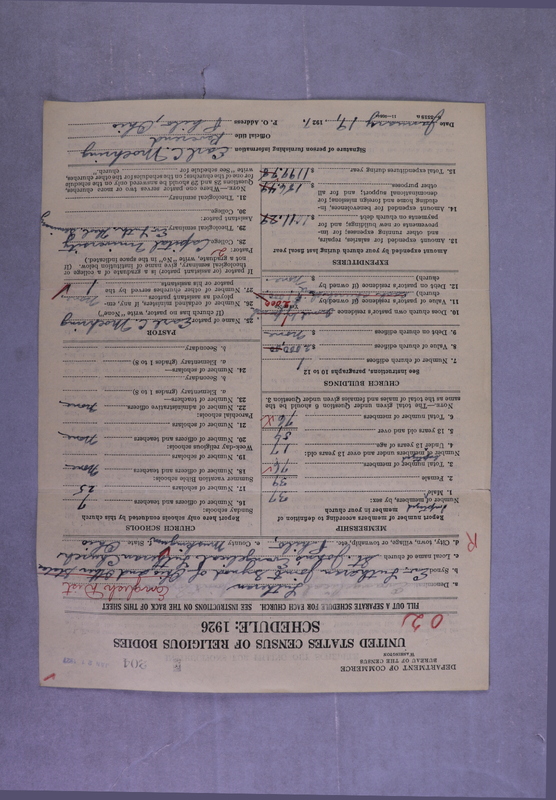 DEPARTMENT OF COMMERCE
BUREAU OF THE CENSUS
WASHINGTON
304
UNITED STATES CENSUS OF RELIGIOUS BODIES
SCHEDULE: 1926
FILL OUT A SEPARATE SCHEDULE FOR EACH CHURCH. SEE INSTRUCTIONS ON THE BACK OF THIS SHEET
a. Denomination Lutheran
b. Synod Ev. Lutheran Joint Synod of Ohio and Other States
English Dist
c. Local name of church St. John's Evangelical Lutheran Church
d. City, town, village, or township, etc.
e. County, Washington, State, Ohio
MEMBERSHIP
Report number of members according to definition of
member in your church
Number of members, by sex:
1. Male 37
2. Female 39
3. Total number of members 76
Number of members under and over 13 years old:
4. Under 13 years of age 17
5. 13 years old and over 59
6. Total number of members 76
NOTE.—The total given under Question 6 should be the
same as the total of males and females given under Question 3.
CHURCH BUILDINGS
See instructions, paragraphs 10 to 12
7. Number of church edifices 1
8. Value of church edifices $
9. Debt on church edifices $ None
10. Does church own pastor's residence
11. Value of pastor's residence (if owned by
church) $
12. Debt on pastor's residence (if owned by
church) $ none
EXPENDITURES
Amount expended by your church during last fiscal year
13. Amount expended for salaries, repairs,
and other running expenses; for im-
provements or new buildings; and for
payments on church debt $
14. Amount expended for benevolences, in-
cluding home and foreign missions; for
denominational support; and for all
other purposes $
15. Total expenditures during year $
CHURCH SCHOOLS
Report here only schools conducted by this church
Sunday schools:
16. Number of officers and teachers 7
17. Number of scholars 25
Summer vacation Bible schools:
18. Number of officers and teachers None
19. Number of scholars
Week-day religious schools:
20. Number of officers and teachers none
21. Number of scholars
Parochial schools:
22. Number of administrative officers none
23. Number of teachers—
a. Elementary (grades 1 to 8)
b. Secondary
24. Number of scholars—
a. Elementary (grades 1 to 8)
b. Secondary
PASTOR
25. Name of pastor Earl C. Moehring
(If church has no pastor, write "None")
26. Number of ordained ministers, if any, em-
ployed as assistant pastors
27. Number of other churches served by the
pastor or his assistants 1
If pastor (or assistant pastor) is a graduate of a college or
theological seminary, give name of institution below. (If
not a graduate, write "No" in the space indicated.)
Pastor:
28. College Capital University
29. Theological seminary
Assistant pastor:
30. College
31. Theological seminary
NOTE.—Where one pastor serves two or more churches,
Questions 28 and 29 should be answered only on the schedule
for one of the churches; on the schedules for the other churches,
write "See schedule for church."
Signature of person furnishing information Earl C. Moehring
Official title
Date January 19, 1927. P. O. Address